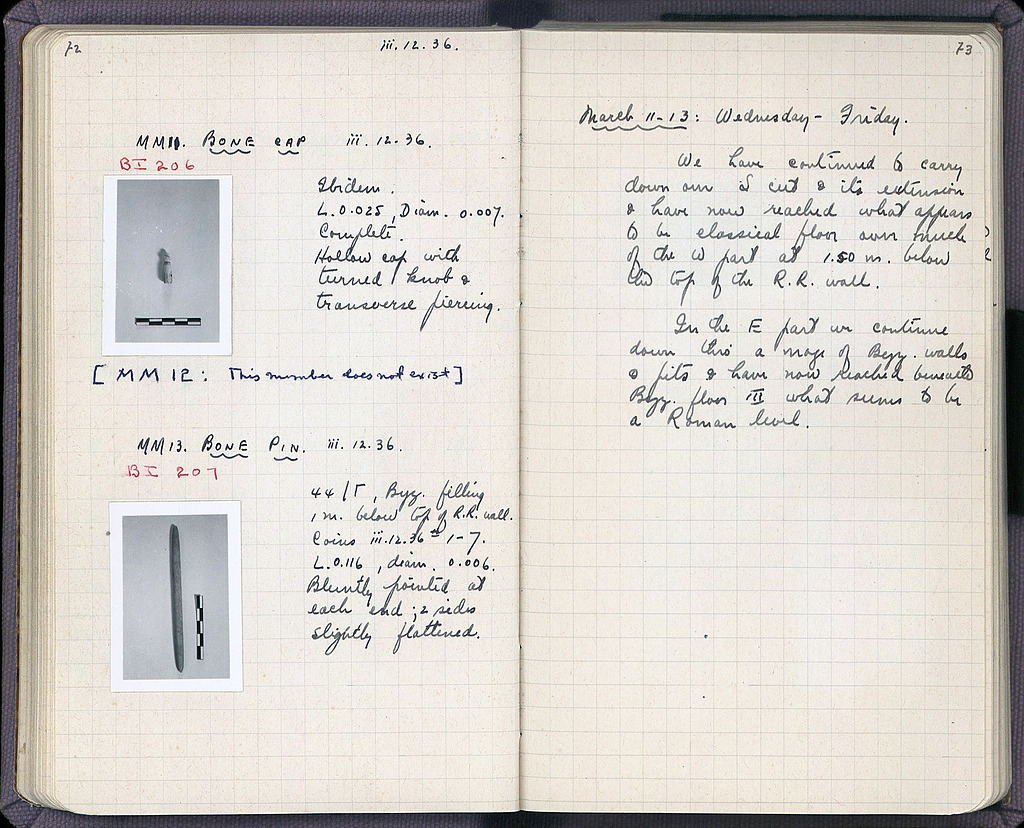 72
iii.12.36.
MM11. BONE CAP iii.12.36.
BI 206
Ibidem.
L. 0.025, Diam. 0.007.
Complete.
Hollow cap with
turned knob &
transverse piercing.
[MM 12: This number does not exist]
MM13. BONE PIN. iii.12.36.
BI 207
44/Γ, Byz. filling
1 m. below top of R.R. wall.
Coins iii.12.36 1-7.
L. 0.116, diam. 0.006.
Bluntly pointed at
each end; 2 sides
slightly flattened.
73
March 11-13: Wednesday - Friday.
We have continued to carry
down our S cut & its extension
& have now reached what appears
to be classical floor over much
of the W part at 1.50 m. below
the top of the R.R. wall.
In the E part we continue
down thro' a maze of Byz. walls
& pits & have now reached beneath
Byz. floor III what seems to be
a Roman level.